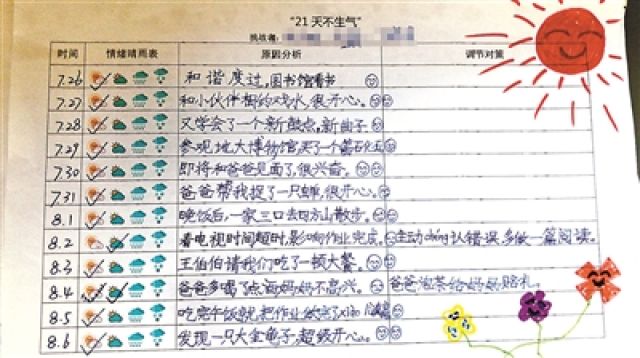 “21天不生气”
挑战者：
时间 情绪晴雨表 原因分析 调节对策
7.26 和谐度过,图书馆看书
7.27 和小伙伴相约戏水,很开心。
7.28 又学会了一个新鼓点,新曲子
7.29 参观地大博物馆买了一个化石
7.30 即将和爸爸见面了,很兴奋。
7.31 爸爸帮我捉了一只蝉,很开心。
8.1 晚饭后,一家三口去四方山散步。
8.2 看电视时间超时,影响作业完成。 主动chéng认错误,多做一篇阅读。
8.3 王伯伯请我们吃了一顿大餐。
8.4 爸爸多喝了点酒妈妈不高兴。 爸爸泡茶给妈妈赔礼。
8.5 吃完午饭就把作业做完了
8.6 发现一只大金龟子,超级开心。